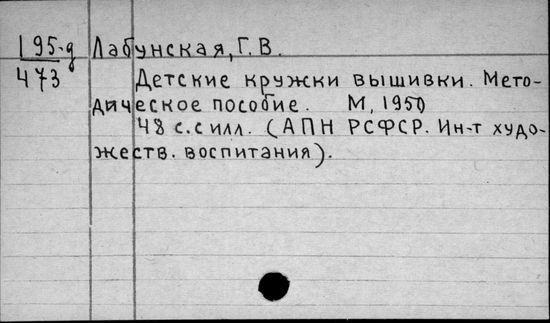 195-д Лабунская, Г. В.
473 Детские кружки вышивки. Мето-
дическое пособие. М, 1950
48 с. с илл. (АПН РСФСР. Ин-т худо-
жеств. воспитания).